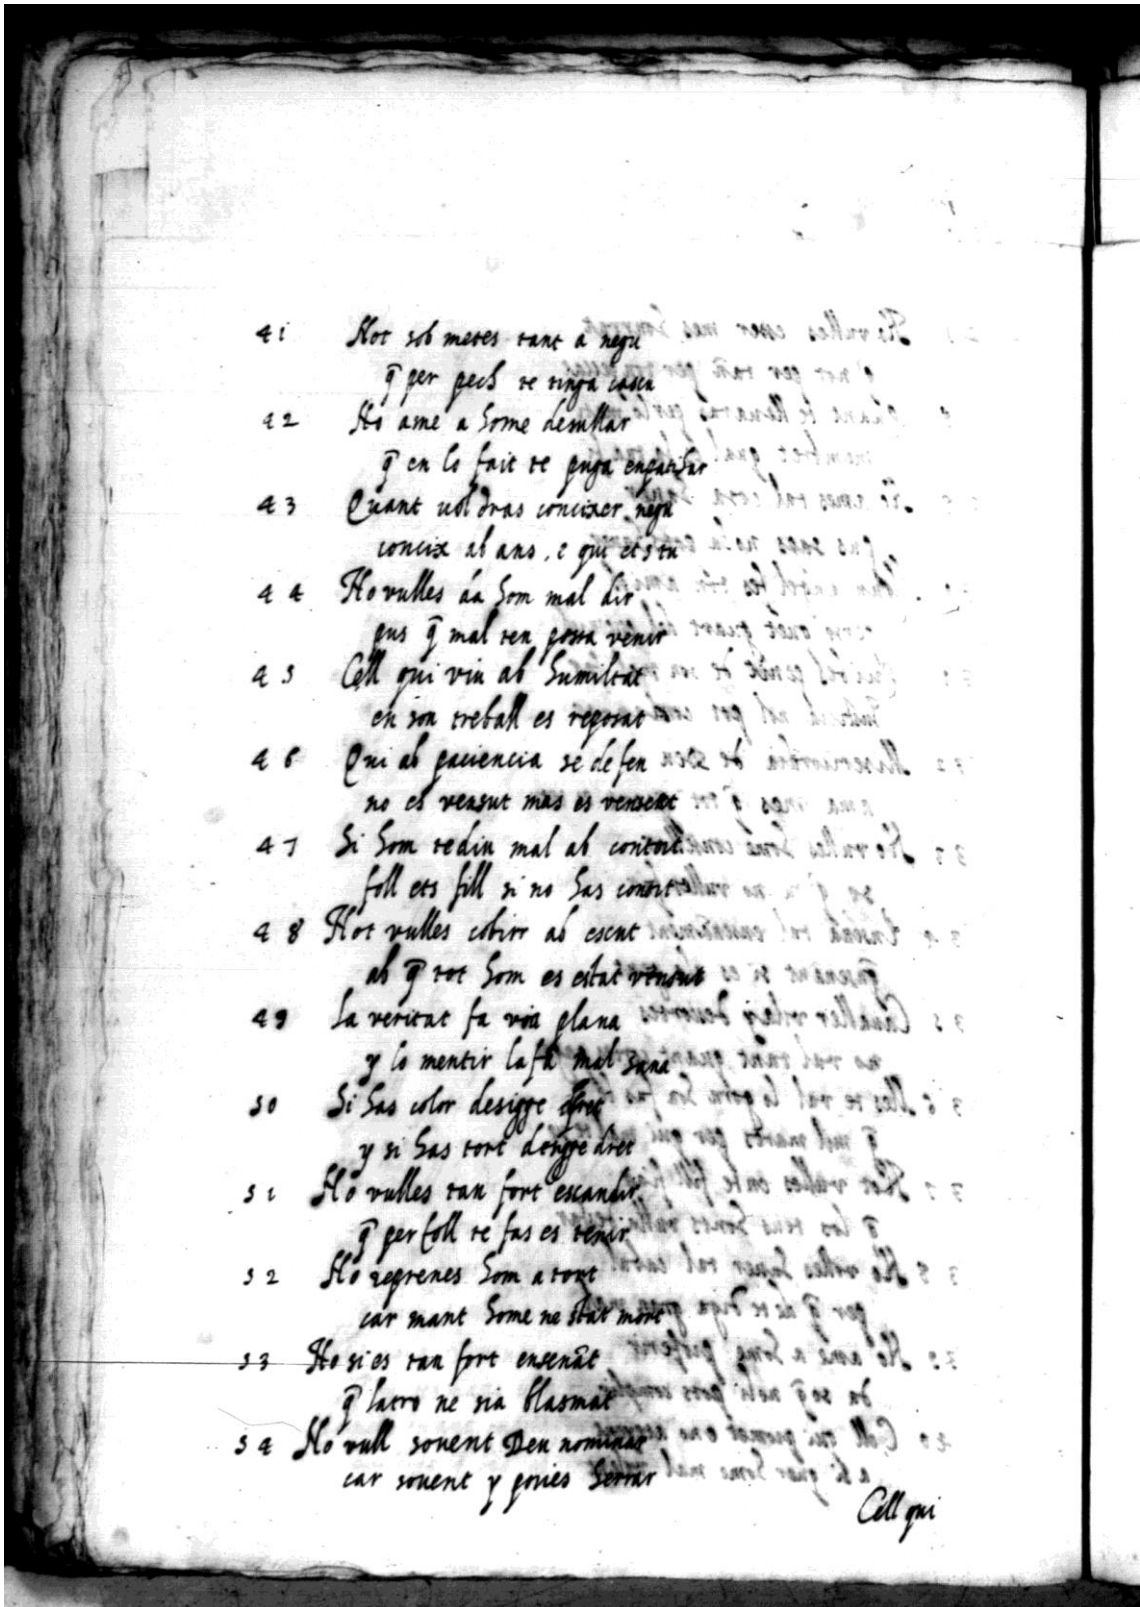 41 Not sob metes tant a negu
q̃ per pech te tinga cascu
42 No ame a home desullar
q̃ en lo fait te puga
43 Quant voldras conexer negu
coneix abans, e qui ets tu
44 No vulles da hom mal dir
pus q̃ mal ten possa venir
45 Cell qui viu ab humilitat
en son treball es reposat
46 Qui ab paciencia se defen
no es vensut mas es vensent
47 Si hom te diu mal ab
foll ets fill si no has
48 Not vulles cobrir ab escut
ab q̃ tot hom es estat vensut
49 La veritat fa via plana
y lo mentir la fa mal sana
50 Si has color desigge fret
y si has tort dret
51 No vulles tan fort escandir
q̃ per foll te fas es tenir
52 No reprenes hom a tort
car mant home ne stat mort
53 No sies tan fort ensenãt
q̃ latro ne sia blasmat
54 No vull sovent Deu nominar
car sovent y povies herrar
Cell qui